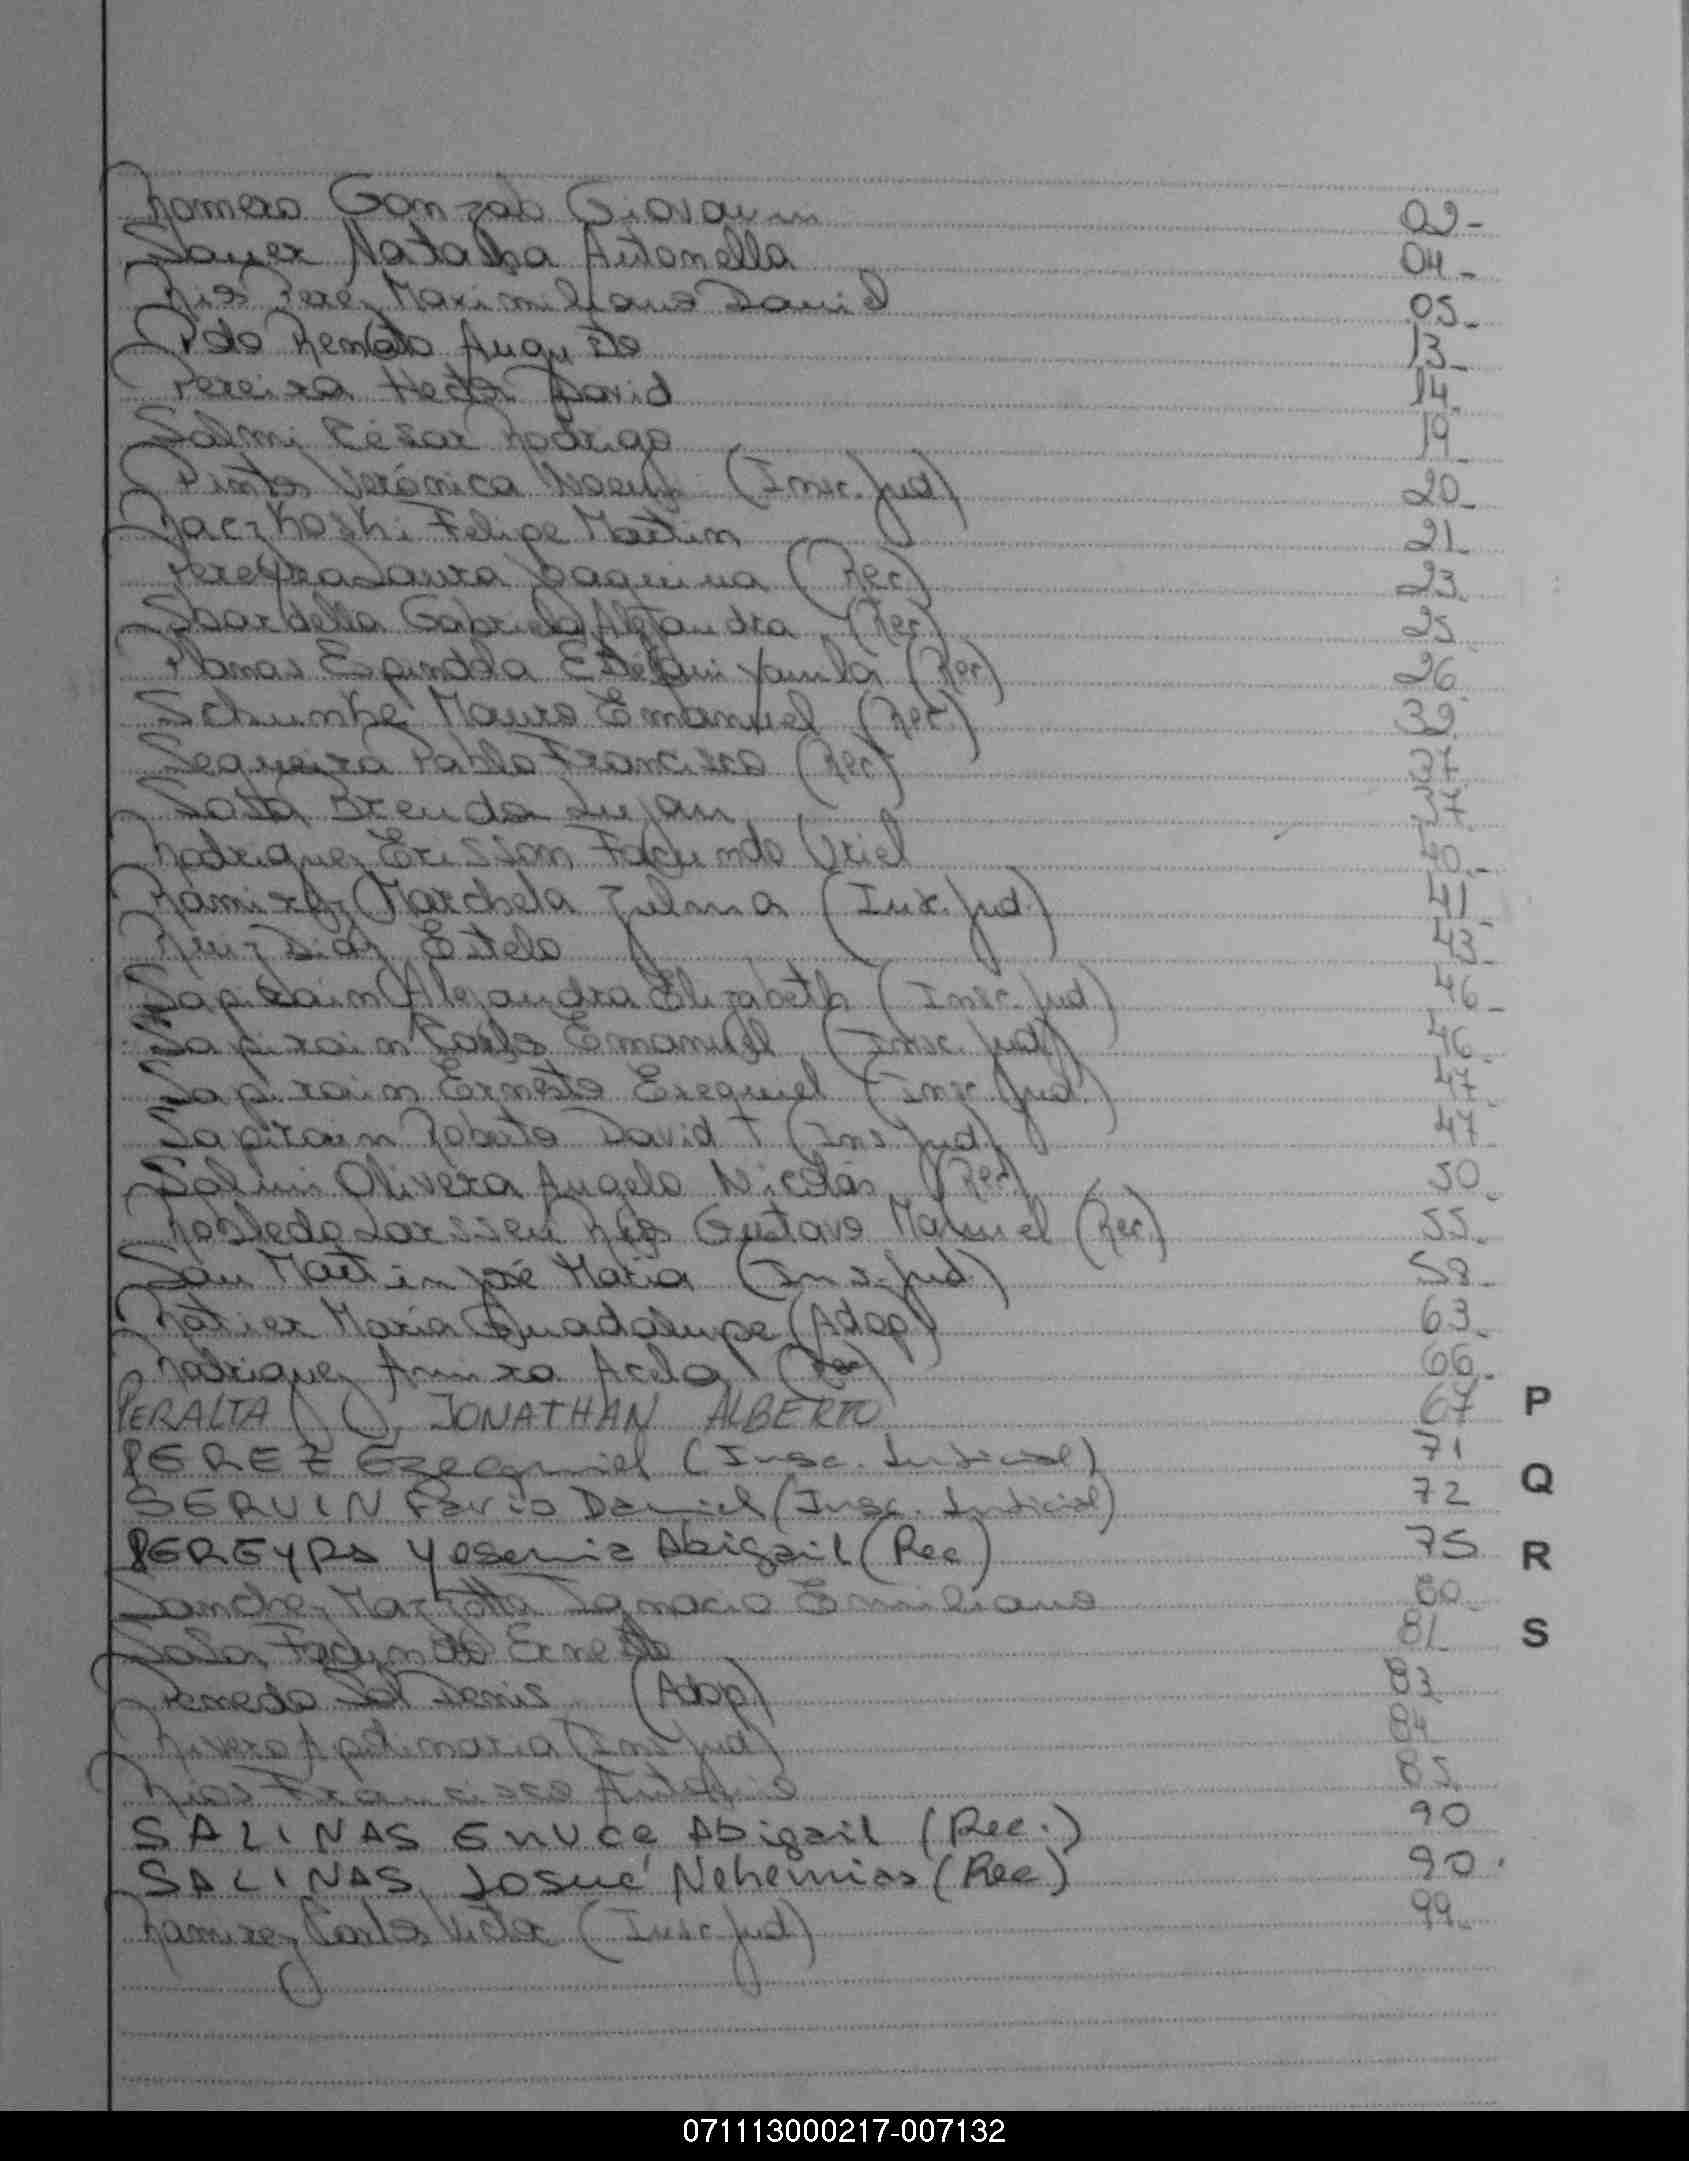 Romero Gonzalo Giovanni 02-
Sauer Natalha Antonella 04-
Rios Perez Maximiliano David 05-
Pdo Renato Augusto 13-
Pereira Hector David 14
Salmi César Rodrigo 19
Pintos Verónica Noemí (Inscr. Jud) 20-
Raczkoski Felipe Martin 21
Pereyra Laura Joaquina (Rec) 23
Sbardella Gabriela Alejandra (Rec) 25
Planas Espindola Yamila (Rec) 26
Schunke Mauro Emanuel (Rec.) 32
Sequeira Pablo Francisco (Rec) 37
Sosa Brenda Lujan 37
Rodriguez Erisson Facundo Uriel 40.-
Ramirez Marchela Zulma (Inscr. Jud.) 41-
Estela 43-
Sapirain Alejandra Elizabeth (Inscr. Jud) 46-
Sapirain Carlos Emanuel (Inscr. Jud) 46
Sapirain Ernesto Exequiel (Inscr. Jud.) 47
Sapirain Roberto David T (Ins. Jud) 47
Salmi Olivera Angelo Nicolás (Rec) 50-
Robledo Larssen Gustavo Manuel (Rec) 55-
San Martin José Maria (Ins. Jud) 58-
Ratier Maria Guadalupe (Adop) 63-
Rodriguez (Rec) 66-
PERALTA JONATHAN ALBERTO 67
P
PEREZ Ezequiel (Insc. Judicial) 71
Q
SERVIN Dario Daniel (Insc. Judicial) 72
PEREYRA Yesenia Abigail (Rec) 75
R
Sanchez Mazzotta Ignacio Emiliano 80
Sosa Facundo Ernesto 81
S
Penedo Sol Denis (Adop) 83
Rivero Apolinaria (Ins. Jud) 84
Rios Francisco Antonio 85
SALINAS Enuce Abigail (Rec.) 90
SALINAS Josué Nehemias (Rec) 90
Ramirez Carlos Victor (Inscr Jud) 99-
071113000217-007132